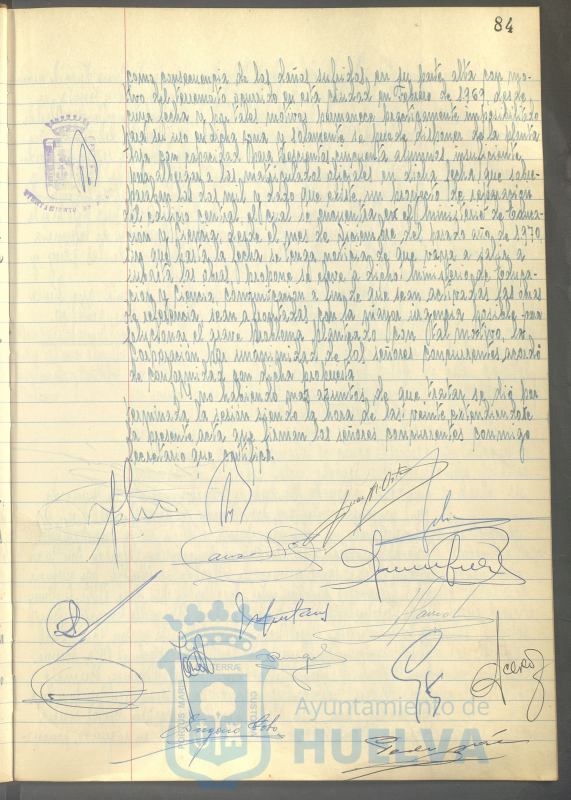 84
como consecuencia de los daños sufridos, en su parte alta con mo-
tivo del terremoto ocurrido en esta ciudad en Febrero de 1.969 desde
cuya fecha y por tales motivos permanece prácticamente imposibilitado
para su uso en dicha zona y solamente se puede disponer de la planta
baja con capacidad para trescientos cincuenta alumnos, insuficiente
para albergar a los matriculados oficiales en dicha fecha que sobre-
pasaban los dos mil y dado que existe un proyecto de reparación
del edificio central el cual se encuentra en el Ministerio de Educa-
ción y Ciencia, desde el mes de Diciembre del pasado año de 1.970
sin que hasta la fecha se tenga noticias de que vaya a salir a
subasta las obras, propone se eleve a dicho Ministerio de Educa-
ción y Ciencia, comunicación a fin de que sean activadas las obras
de referencia sean adoptadas con la mayor urgencia posible para
solucionar el grave problema planteado con tal motivo, la
Corporación, por unanimidad de los señores concurrentes, acordó
de conformidad con dicha propuesta.
Y no habiendo más asuntos de que tratar se dió por
terminada la sesión siendo la hora de las veinte extendiéndose
la presente acta que firman los señores concurrentes conmigo
Secretario que certifico.
Eugenio
TERRAE
PORTUS MARIS
CUSTODIA
Ayuntamiento de
HUELVA